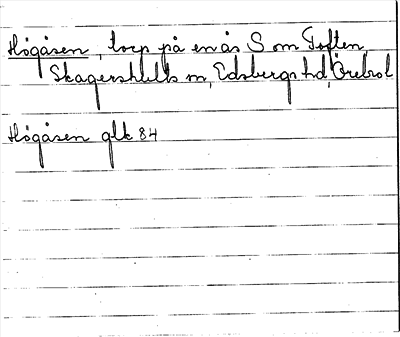 Högåsen, torp på en ås S om Toften,
Skagershults sn, Edsbergs hd, Örebro l
Högåsen glk 84